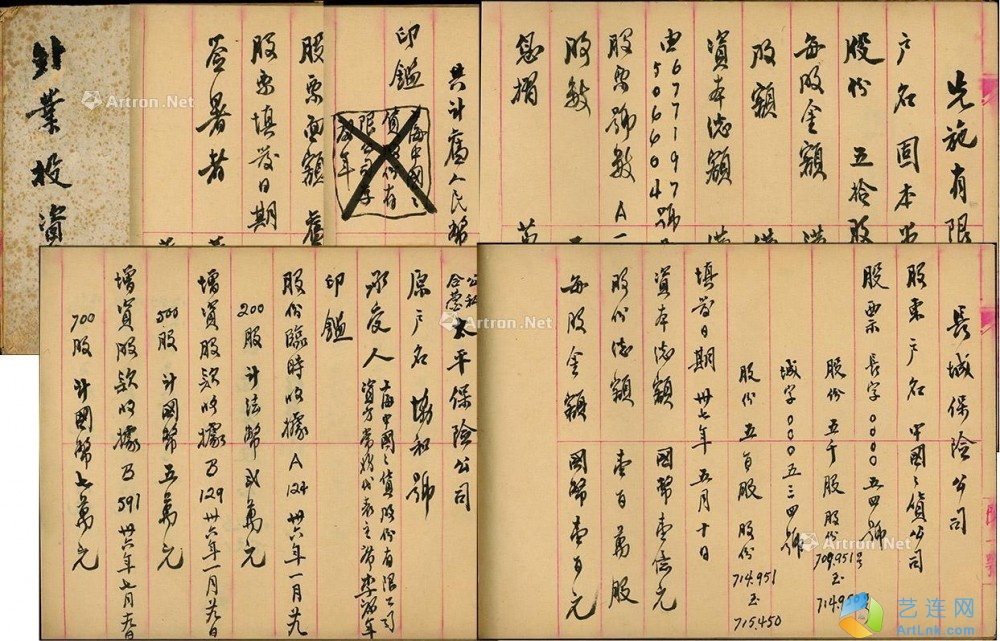 先施有限
户名 国本
股份 五拾股
每股金额
股额
资本总额
由677197號
506604
股票號数 A一
股数
息摺
共计旧人民幣
印鑑
股票面额
股票填發日期
签署者
外業投资
長城保險公司
股東户名 中國國貨公司
股票 長字0000五四號
股份 五千股 股份 709,951號
至 714,950
城字000五三四號
股份 五百股 股份 714,951
至 715,450
填發日期 卅七年五月十日
资本总额 國幣壹億元
股份总额 壹百萬股
每股金额 國幣壹百元
公私合營 太平保險公司
原户名 協和號
承受人 上海中國國货股份有限公司
资方常務代表主席李
印鑑
股份臨時收據 A 124 卅六年一月廿九
200股 计法幣贰萬元
增资股款收據 B 129 卅六年一月廿九日
500股 计國幣五萬元
增资股款收據 B 591 卅六年七月廿九日
700股 计國幣七萬元
Artron.Net
Artron.Net
Artron.Net
Artron.Net
艺连网
ArtLnk.com